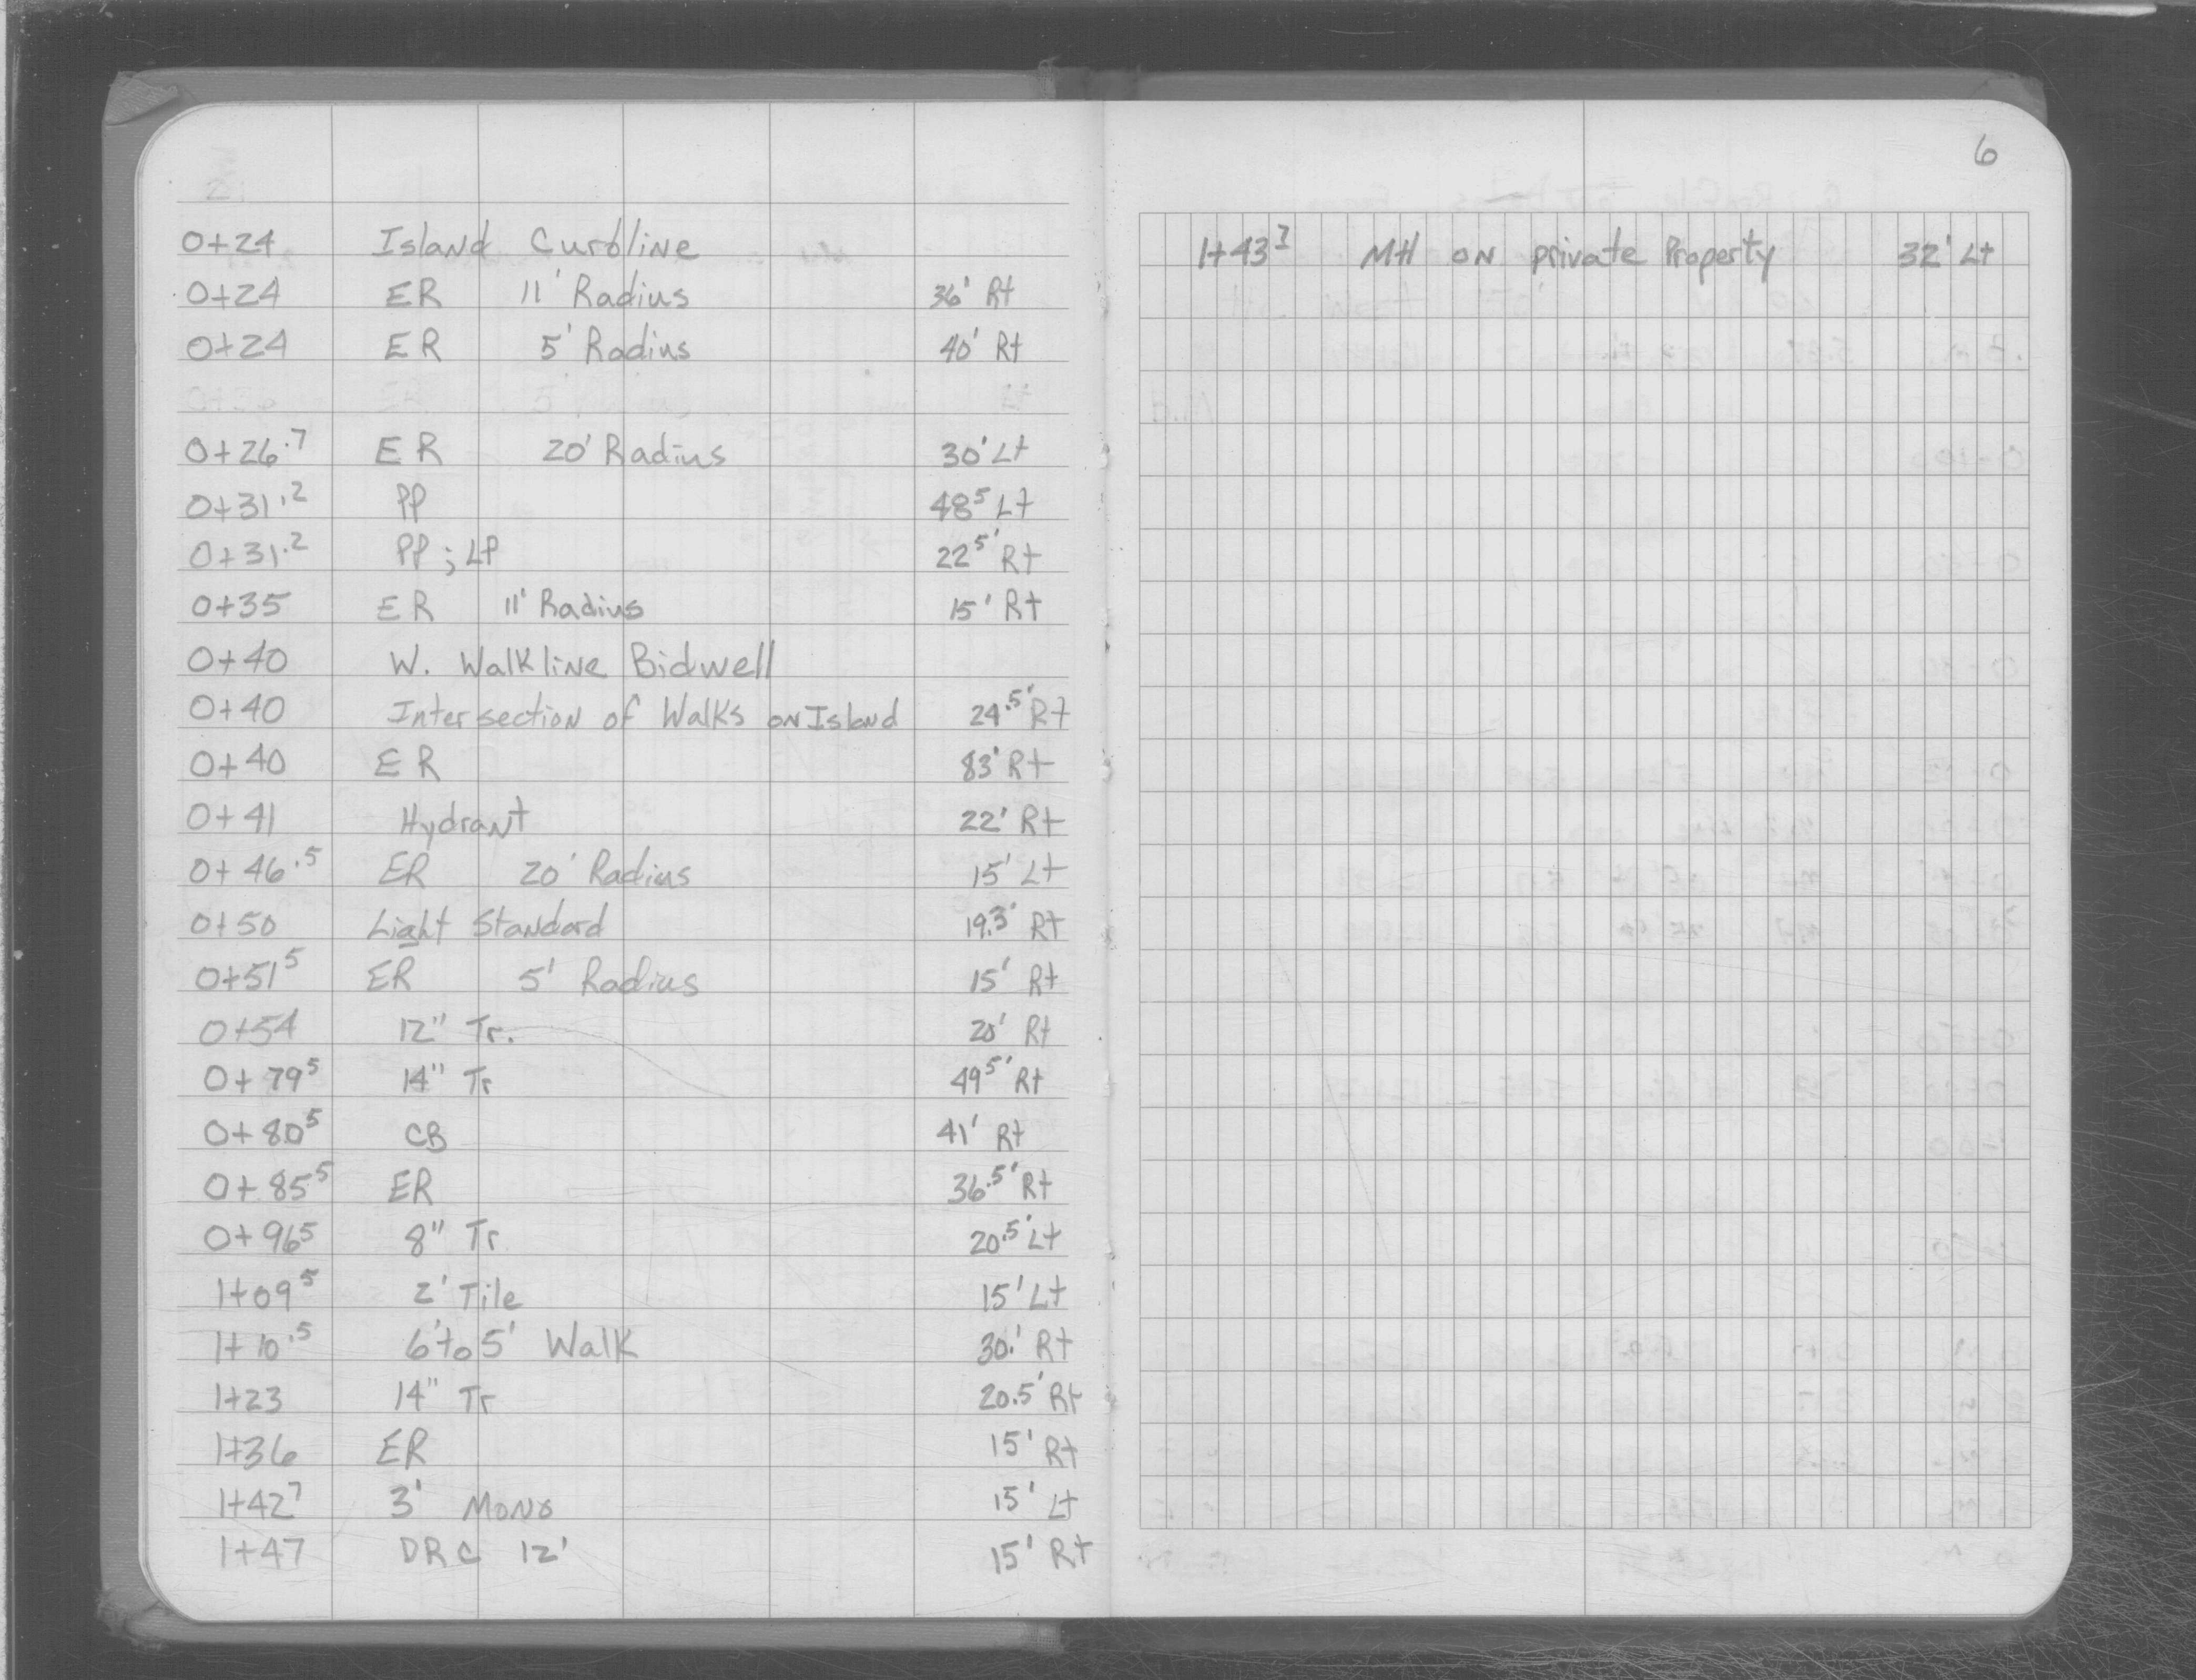 0+24 Island Curbline
0+24 ER 11' Radius 36' Rt
0+24 ER 5' Radius 40' Rt
0+26.7 ER 20' Radius 30' Lt
0+31.2 PP 48⁵ Lt
0+31.2 PP ; LP 22⁵' Rt
0+35 ER 11' Radius 15' Rt
0+40 W. Walkline Bidwell
0+40 Intersection of Walks on Island 24.5' Rt
0+40 ER 83' Rt
0+41 Hydrant 22' Rt
0+46.5 ER 20' Radius 15' Lt
0+50 Light Standard 19.3' Rt
0+51⁵ ER 5' Radius 15' Rt
0+54 12" Tr. 20' Rt
0+79⁵ 14" Tr 49⁵' Rt
0+80⁵ CB 41' Rt
0+85⁵ ER 36.5' Rt
0+96⁵ 8" Tr 20.5' Lt
1+09⁵ 2' Tile 15' Lt
1+10.5 6' to 5' Walk 30.' Rt
1+23 14" Tr 20.5' Rt
1+36 ER 15' Rt
1+42⁷ 3' Mono 15' Lt
1+47 DRC 12' 15' Rt
6
1+43⁷ MH on private Property 32' Lt